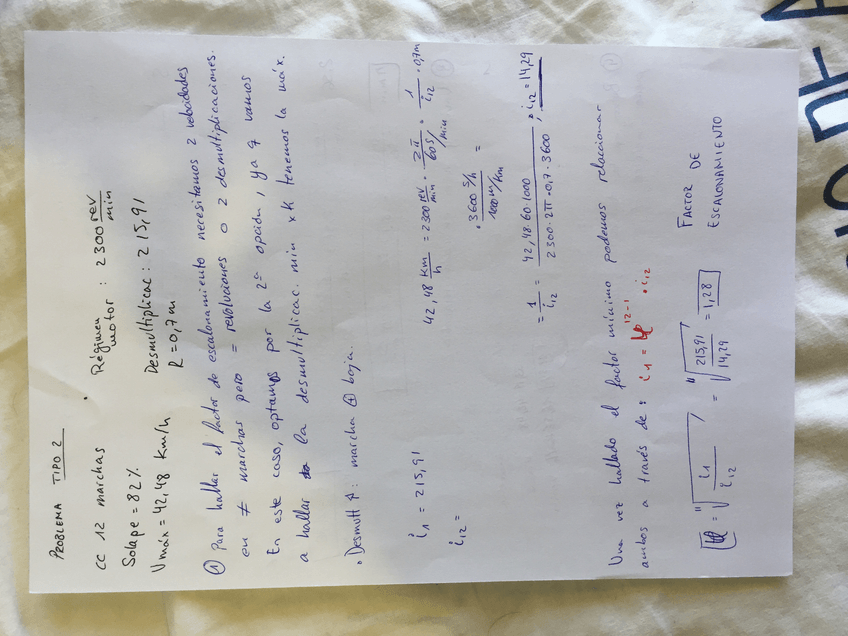 PROBLEMA TIPO 2
CC 12 marchas
Solape = 82%
Vmáx = 42,48 Km/h
Régimen motor : 2300 rev/min
Desmultiplicac : 215,91
R = 0,7 m
① Para hallar el factor de escalonamiento necesitamos 2 velocidades
en ≠ marchas pero = revoluciones o 2 desmultiplicaciones.
En este caso, optamos por la 2ª opción, ya q vamos
a hallar la desmultiplicac. min xk tenemos la máx.
. Desmult : marcha ⊕ baja.
i1 = 215,91
i12 =
42,48 Km/h = 2300 rev/min · 2π/60 s/min · 1/i12 · 0,7m
· 3600 s/h / 1000 m/Km =
= 1/i12 = 42,48·60·1000 / 2300·2π·0,7·3600 ; i12 = 14,29
Una vez hallado el factor mínimo podemos relaccionar
ambos a través de : i1 = φ^12-1 · i12
φ = 11√(i1/i12) = 11√(215,91/14,29) = 1,28
FACTOR DE
ESCALONAMIENTO